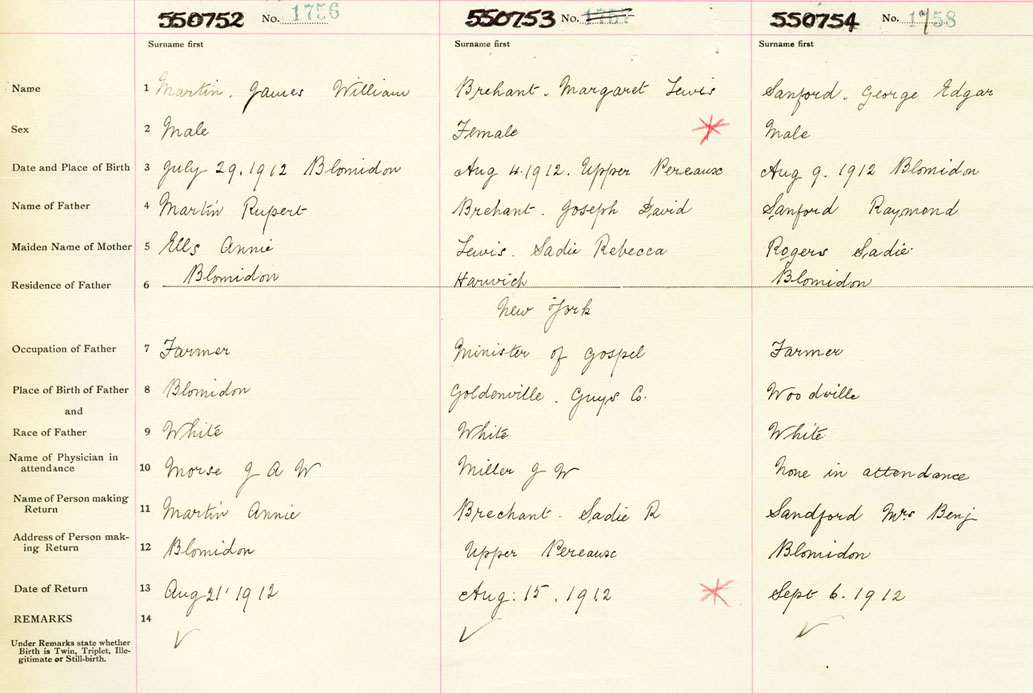 550752 No. 1756 550753 No. 1757 550754 No. 1758
Surname first Surname first Surname first
Name 1 Martin. James William Brehant. Margaret Lewis Sanford. George Edgar
Sex 2 Male Female Male
Date and Place of Birth 3 July 29, 1912 Blomidon Aug 4. 1912. Upper Pereaux Aug 9. 1912 Blomidon
Name of Father 4 Martin Rupert Brehant. Joseph David Sanford Raymond
Maiden Name of Mother 5 Ells Annie Lewis. Sadie Rebecca Rogers Sadie
Residence of Father 6 Blomidon Harwich Blomidon
New York
Occupation of Father 7 Farmer Minister of Gospel Farmer
Place of Birth of Father 8 Blomidon Goldenville. Guys Co. Woodville
and
Race of Father 9 White White White
Name of Physician in
attendance 10 Morse J A W Miller J W None in attendance
Name of Person making
Return 11 Martin Annie Brechant. Sadie R Sandford Mrs Benj
Address of Person mak-
ing Return 12 Blomidon Upper Pereaux Blomidon
Date of Return 13 Aug 21' 1912 Aug. 15. 1912 Sept 6. 1912
REMARKS 14
Under Remarks state whether
Birth is Twin, Triplet, Ille-
gitimate or Still-birth.